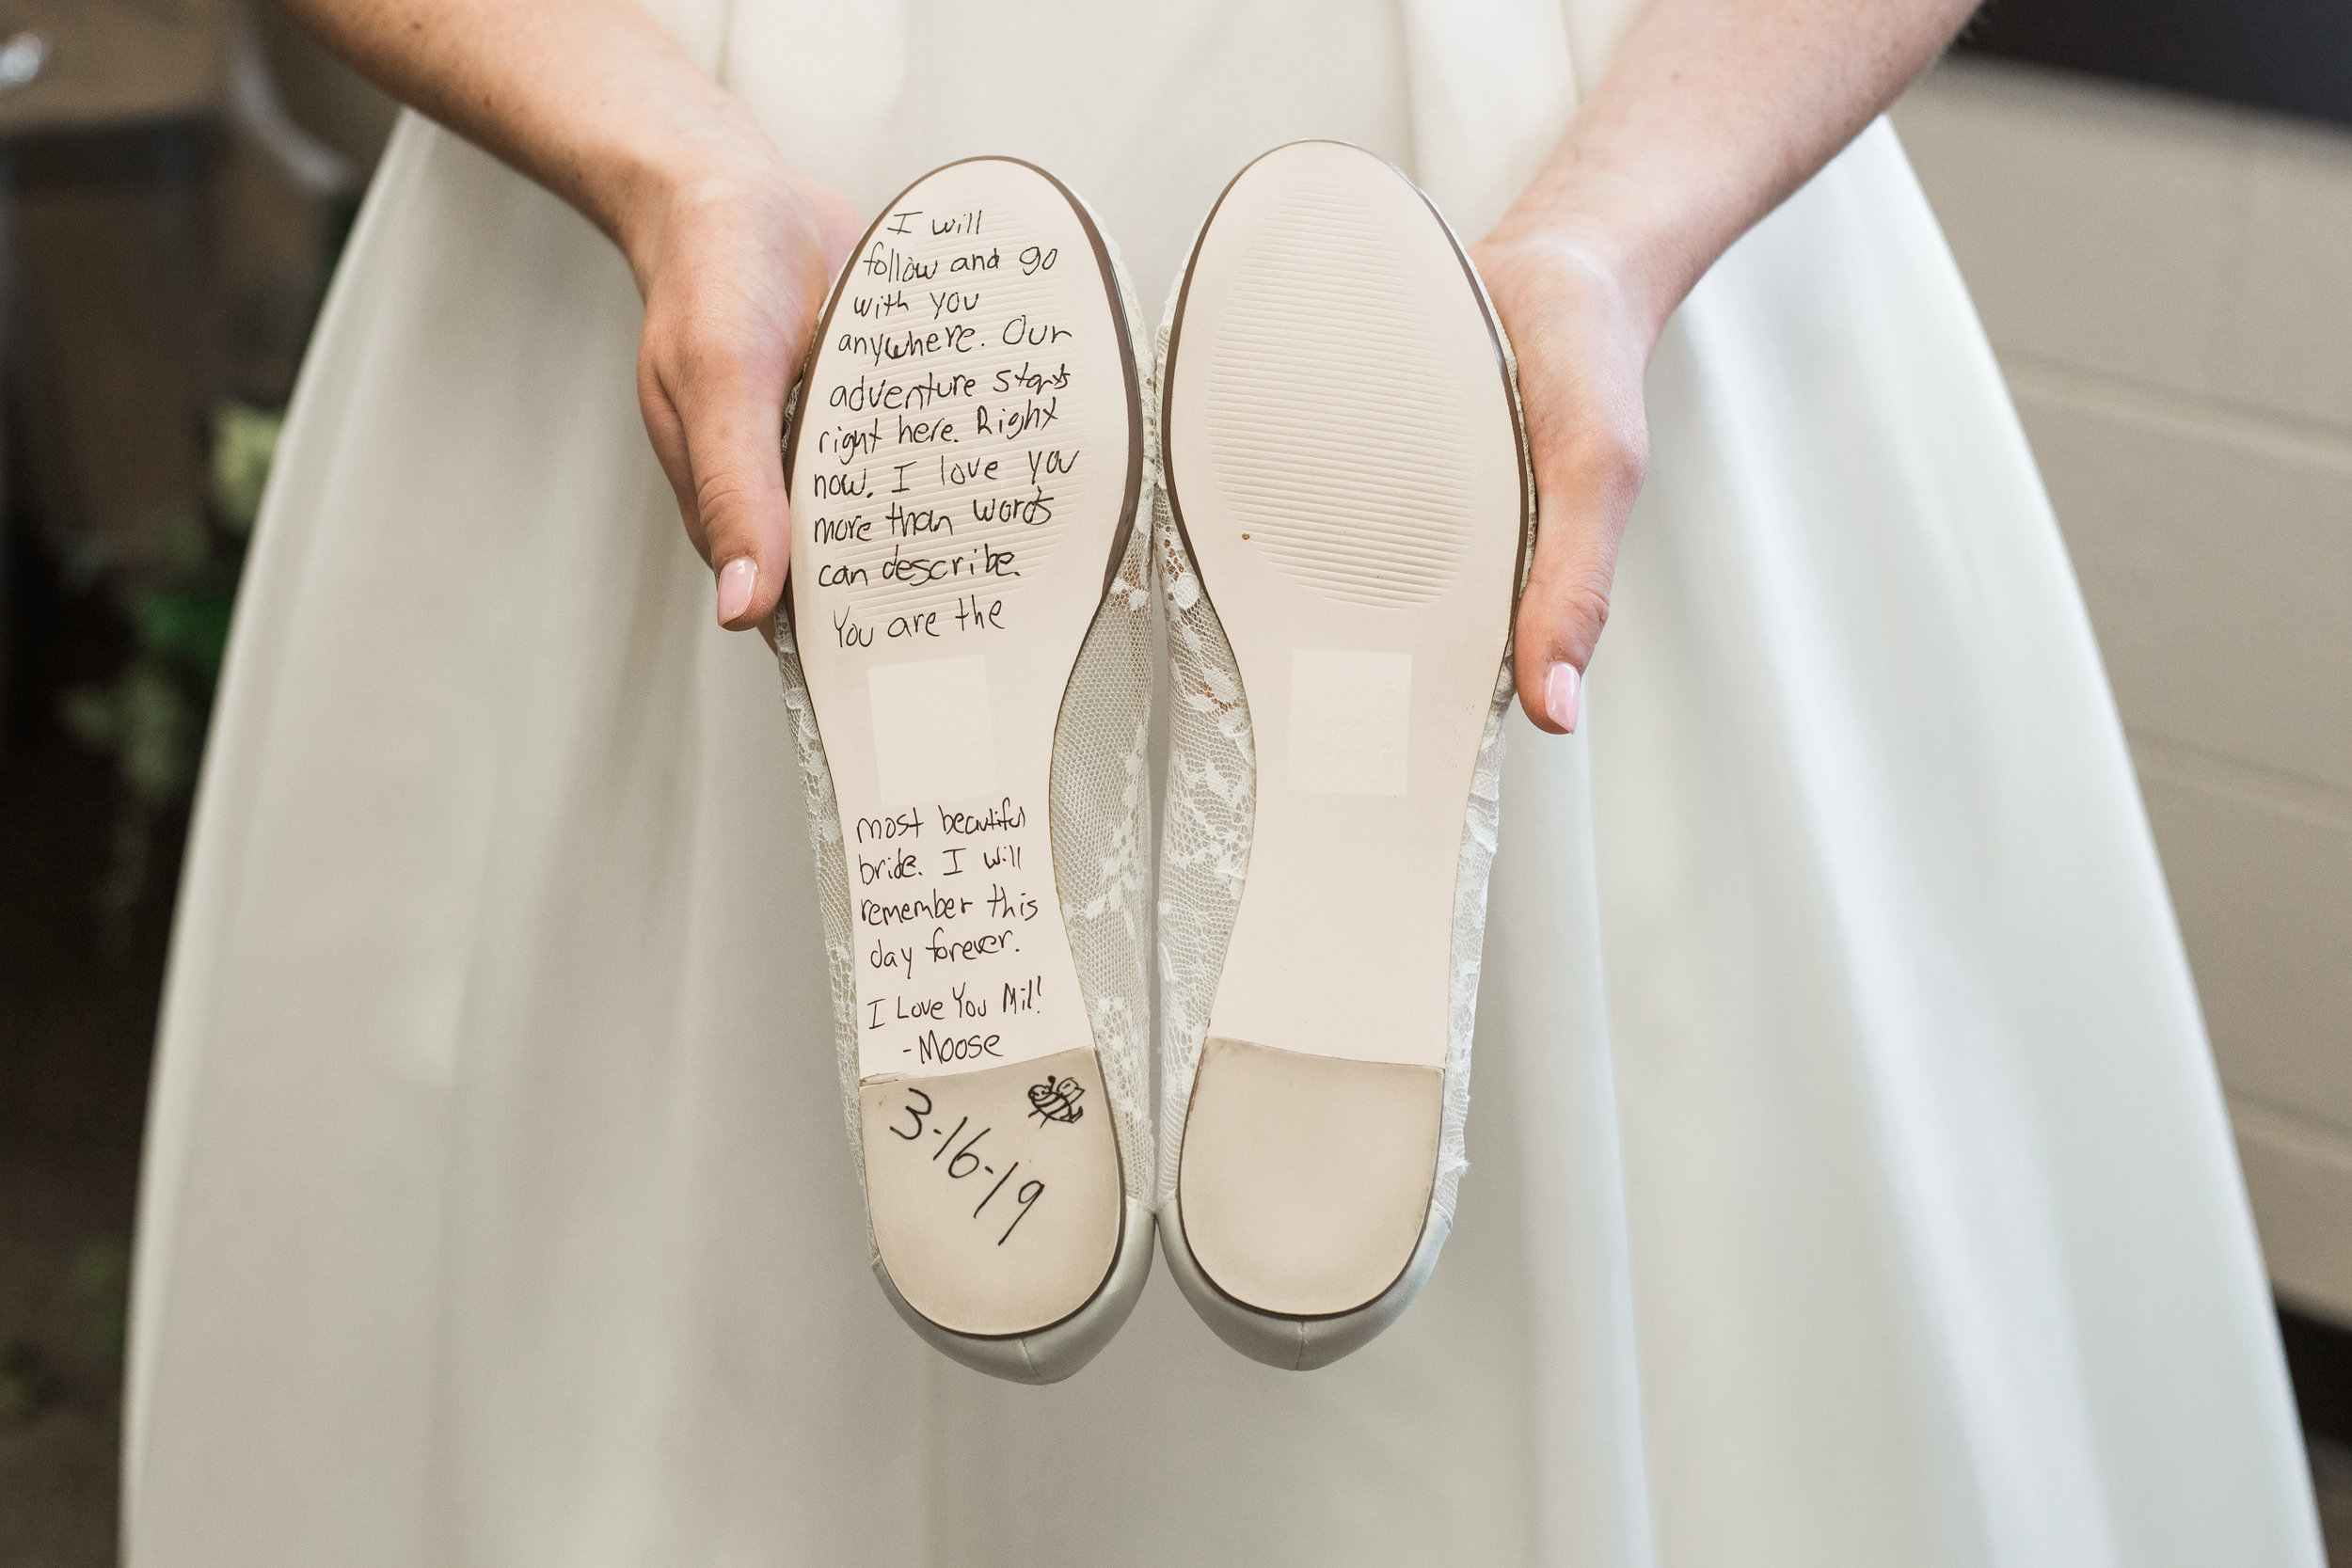 I will
follow and go
with you
anywhere. Our
adventure starts
right here. Right
now. I love you
more than words
can describe.
You are the
most beautiful
bride. I will
remember this
day forever.
I Love You Mil!
-Moose
3-16-19